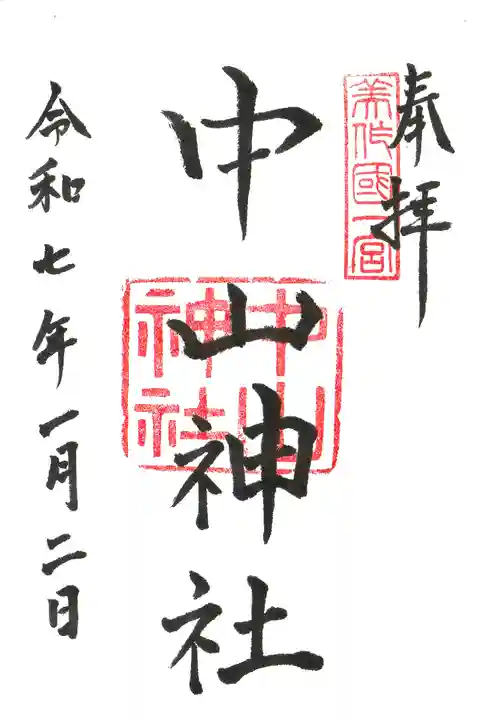 奉拝
美作國一宮
中山神社
中山神社
令和七年一月二日